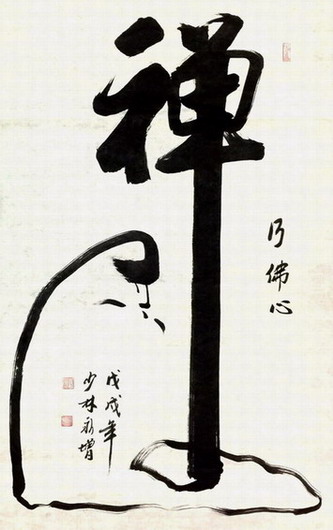 禅
乃佛心
戊戌年
少林永增